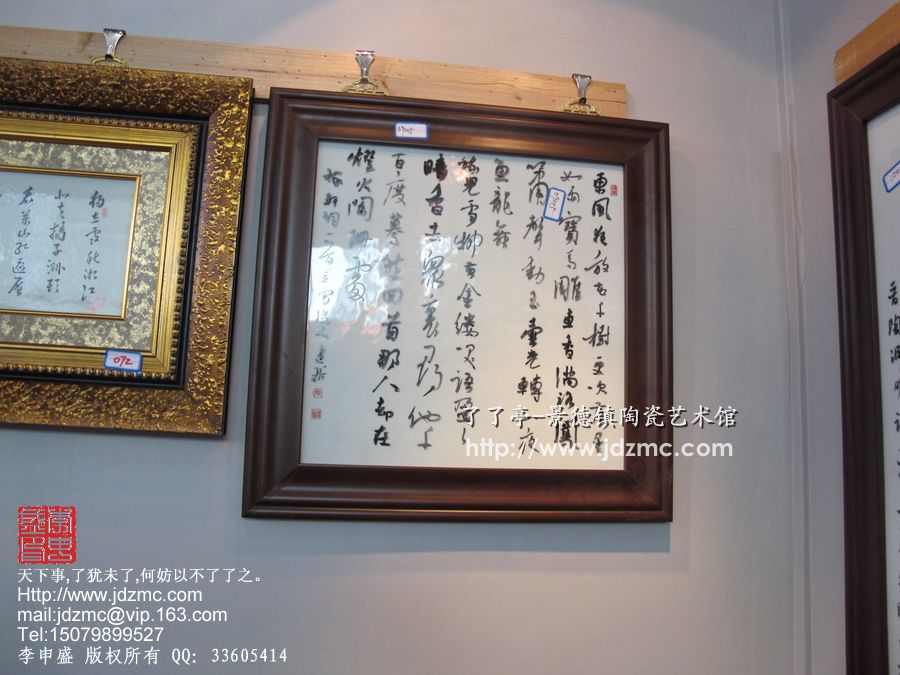 東風夜放花千樹更吹落星
如雨寶馬雕車香滿路鳳
簫聲動玉壺光轉一夜
魚龍舞
蛾兒雪柳黄金縷笑語盈盈
暗香去衆裏尋他千
百度驀然回首那人却在
燈火闌珊處
獨立寒秋湘江
北去橘子洲頭
看萬山紅遍層
072
晉陶淵明
了了亭-景德镇陶瓷艺术馆
http://www.jdzmc.com
天下事,了犹未了,何妨以不了了之。
Http://www.jdzmc.com
mail:jdzmc@vip.163.com
Tel:15079899527
李申盛 版权所有 QQ: 33605414